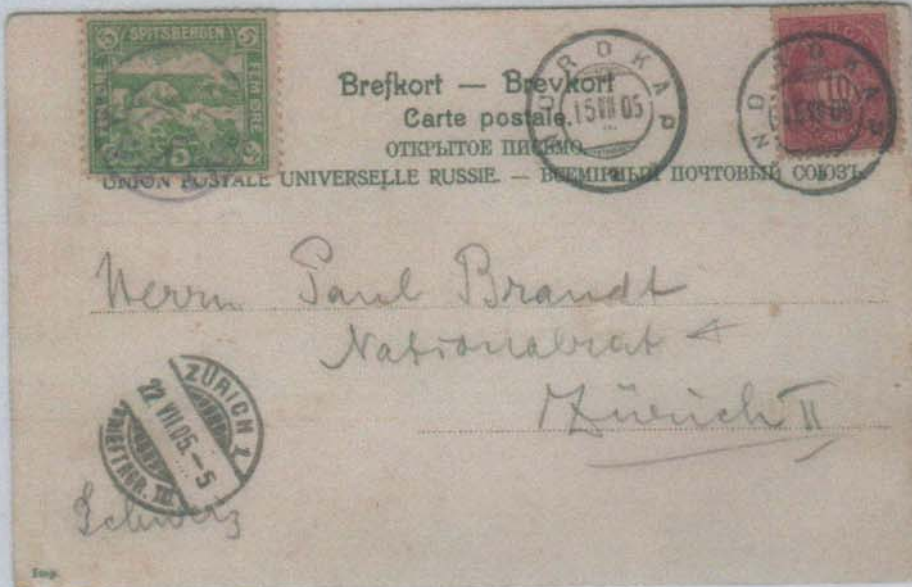 SPITSBERGEN
5
Brefkort — Brevkort
Carte postale.
ОТКРЫТОЕ ПИСЬМО.
UNION POSTALE UNIVERSELLE RUSSIE. — ВСЕМІРНЫЙ ПОЧТОВЫЙ СОЮЗЪ.
NORDKAP
15 VII 05
10
NORDKAP
Herrn Paul Brandt
Nationalrat
Zürich II
ZÜRICH 1
22 VII 05. – 5
BRIEFTRGR. III
Schweiz
Imp.